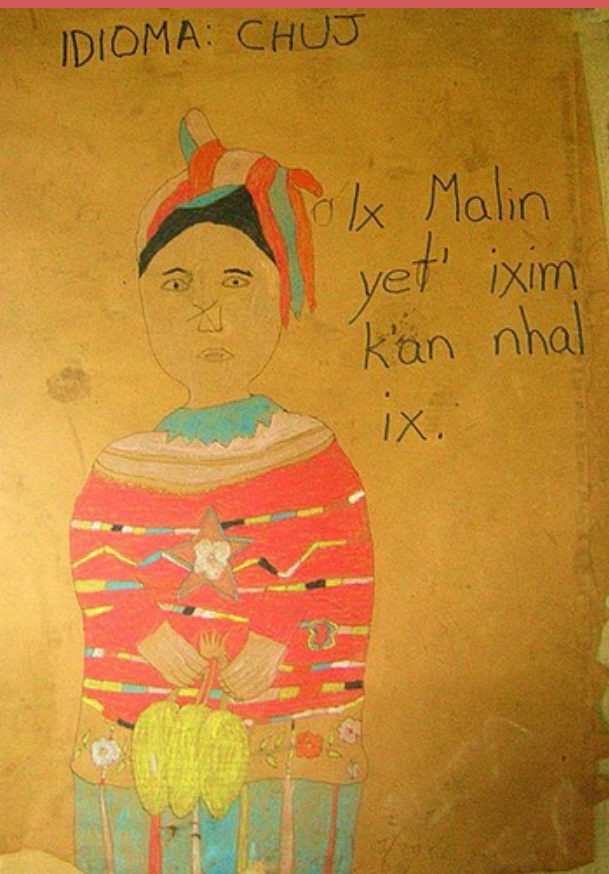 IDIOMA: CHUJ
Ix Malin
yet' ixim
k'an nhal
ix.